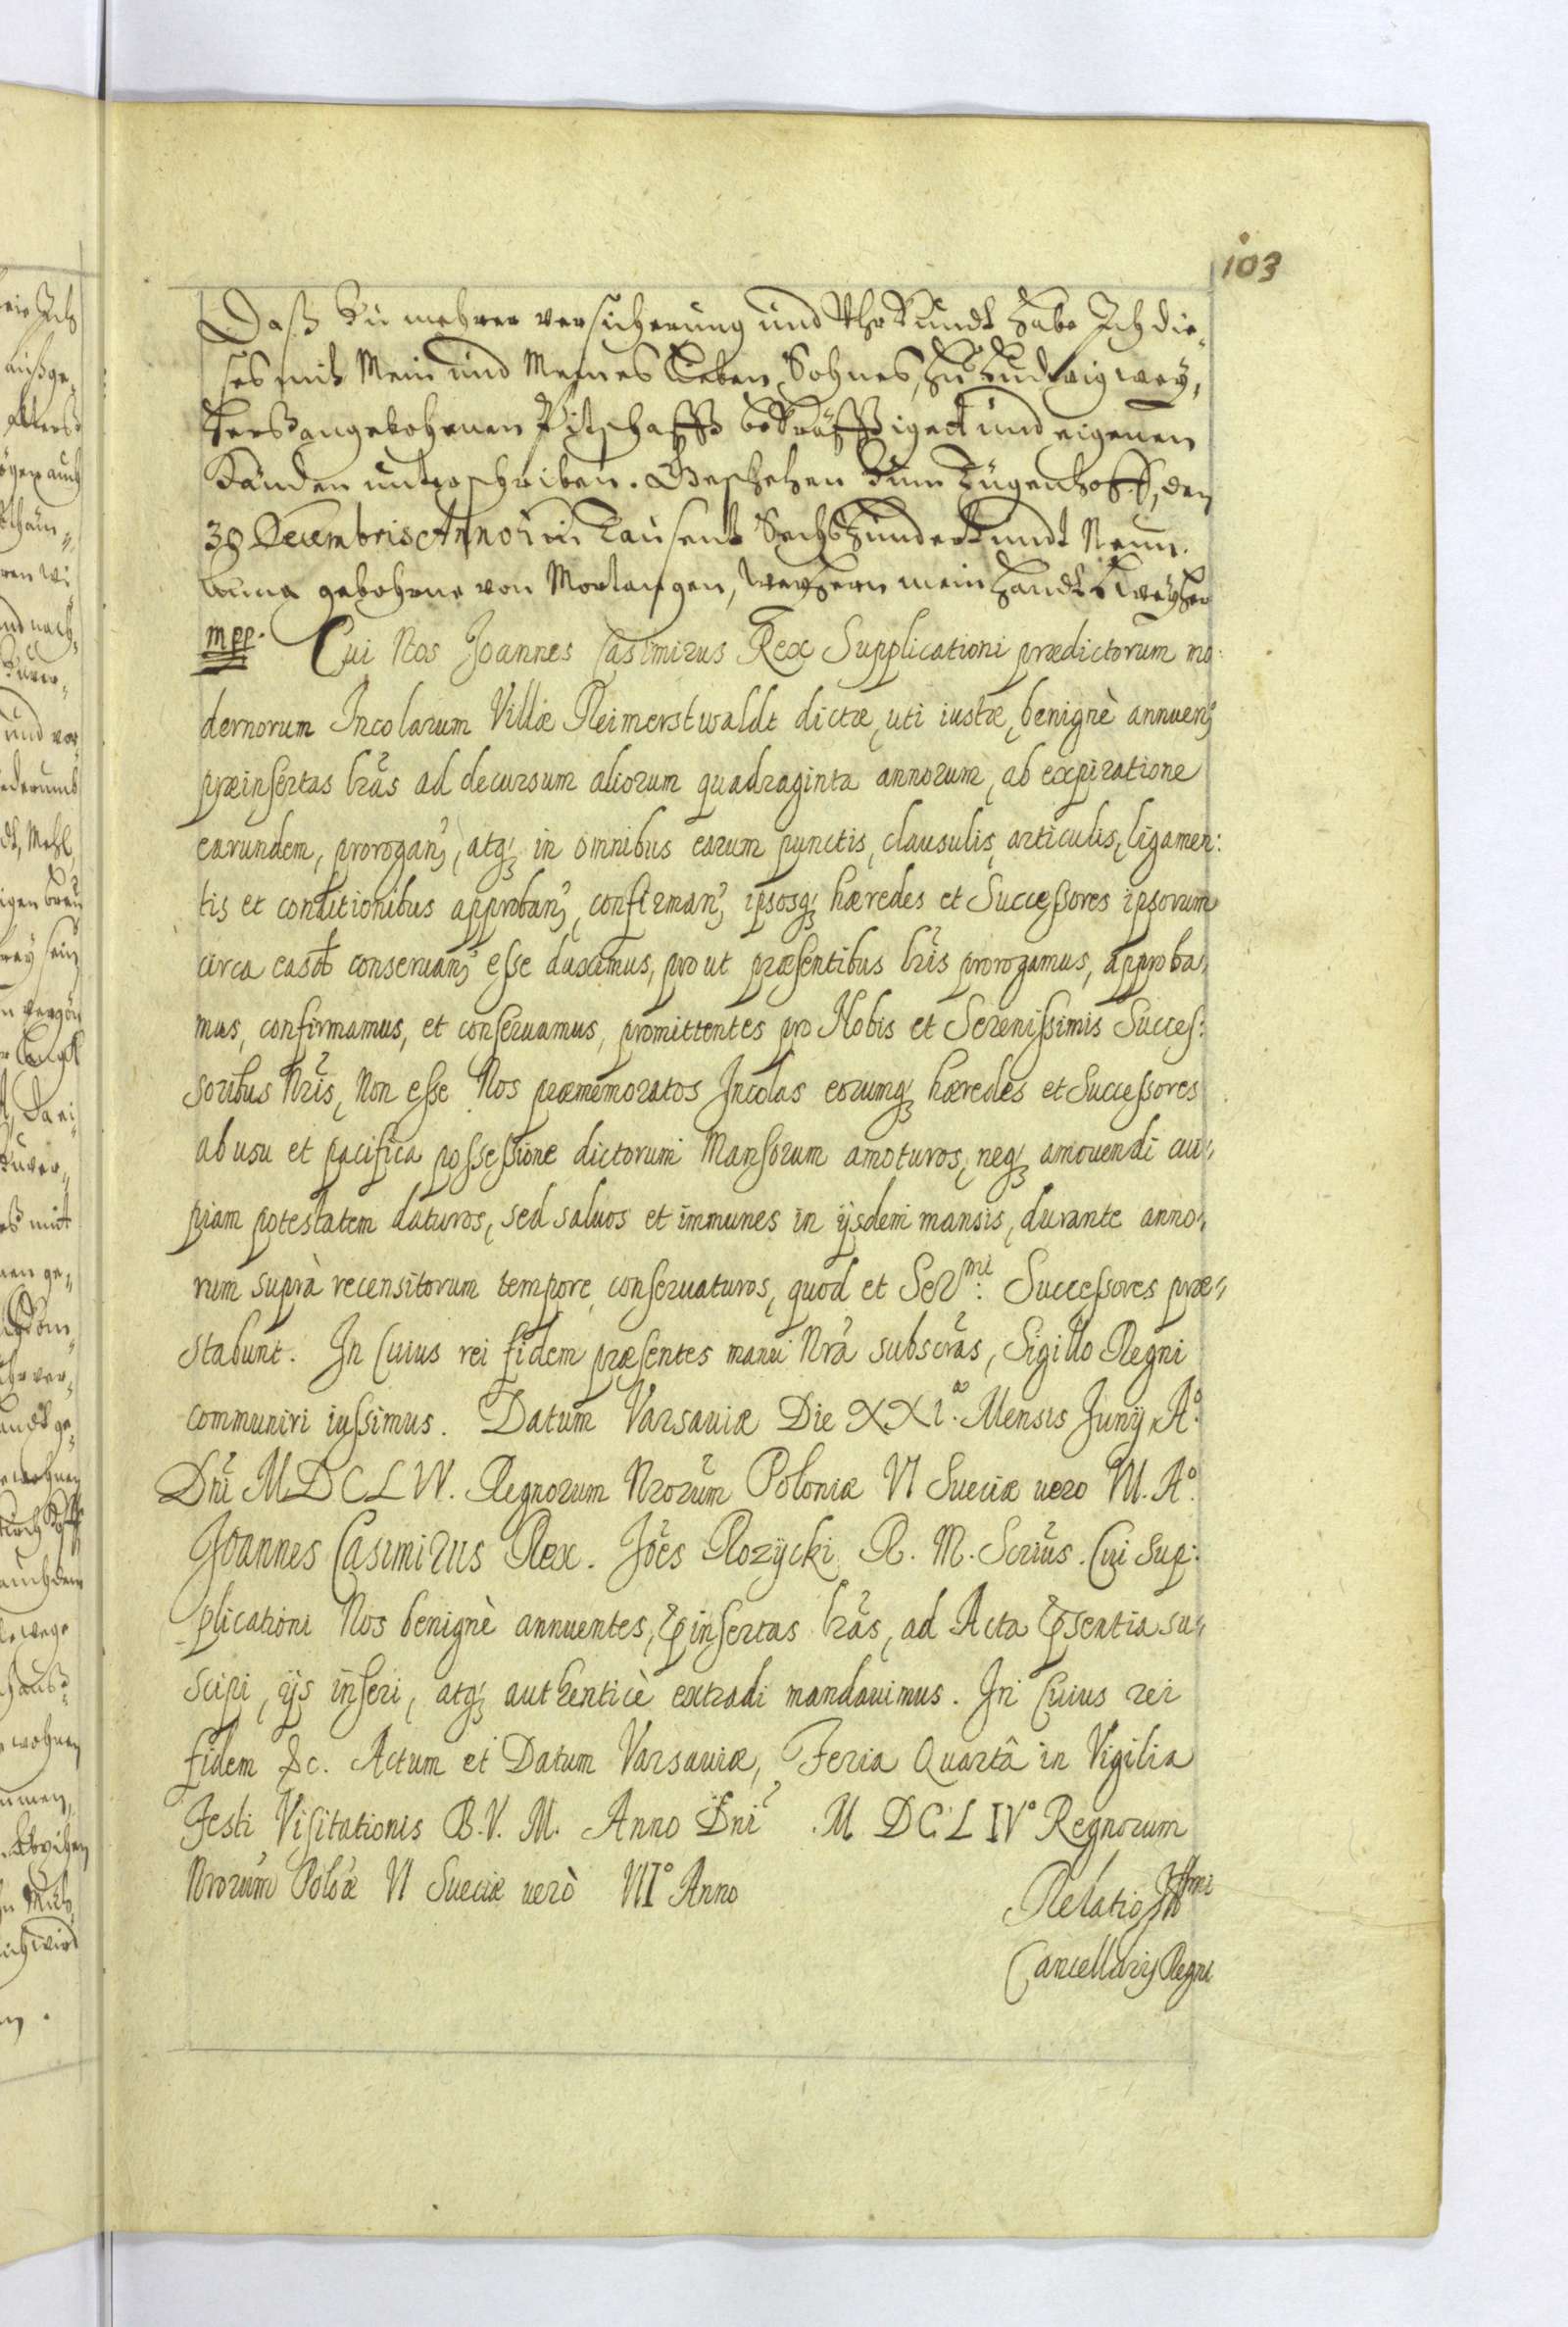 103
Daß Zu mehrer versicherung und Uhrkundt habe Ich die„
ses mit Mein und Meines Lieben Sohnes, Hu Ludwig wey„
herß angebohrnen Pitschafft bekräfftiget und eigenen
Händen unterschrieben. Geschehen Zum Tügenhoff, den
30 Decembris Anno im Tausent Sechshundert undt Neun.
Anna gebohrne von Mortangen, Weyhern mein handt L Weyher
mpp. Cui Nos Joannes Casimirus Rex Supplicationi prædictorum mo:
dernorum Incolarum Villæ Reimerstwaldt dictæ, uti iustæ, benignè annuen̄
præinsertas lrãs ad decursum aliorum quadraginta annorum, ab expiratione
earundem, prorogan̄, atq; in omnibus earum punctis, clausulis, articulis, ligamen:
tis et conditionibus approban̄, confirman̄, ipsosq; hæredes et Successores ipsorum
circa easd conseruan̄ esse duximus, prout præsentibus lrĩs prorogamus, approba„
mus, confirmamus, et conseruamus, promittentes pro Nobis et Serenissimis Succes:
soribus Nrĩs, Non esse Nos præmemoratos Incolas eorumq; hæredes et Successores
ab usu et pacifica possessione dictorum Mansorum amoturos, neq; amouendi cui„
piam potestatem daturos, sed saluos et immunes in ijsdem mansis, durante anno„
rum suprà recensitorum tempore conseruaturos, quod et Serᵐⁱ: Successores præ„
stabunt. In Cuius rei fidem præsentes manu Nrã subscrãs, Sigillo Regni
communiri iussimus. Datum Varsauiæ Die XXIᵃ. Mensis Junÿ A°.
Dnĩ MDCLIV. Regnorum Nrorũm Poloniæ VI Sueciæ uero VII. A°.
Joannes Casimirus Rex. Joẽs Rozycki R. M. Scrĩus. Cui Sup:
plicationi Nos benignè annuentes, p̃insertas lrãs, ad Acta p̃sentia su„
scipi, ijs inseri, atq; authenticè extradi mandauimus. In Cuius rei
fidem &c. Actum et Datum Varsauiæ, Feria Quartâ in Vigilia
Festi Visitationis B.V. M. Anno Dnĩ .M DC LIV° Regnorum
Nrorũm Polõæ VI Sueciæ uerò VII° Anno
Relatio Illmi
Cancellarij Regni